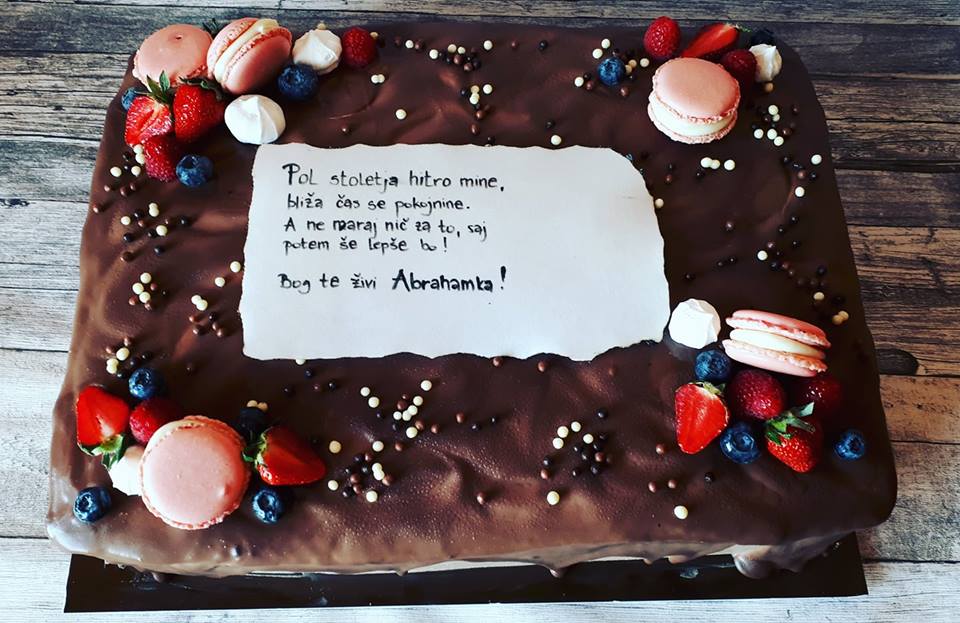 Pol stoletja hitro mine,
bliža čas se pokojnine.
A ne maraj nič za to, saj
potem še lepše bo!
Bog te živi Abrahamka!